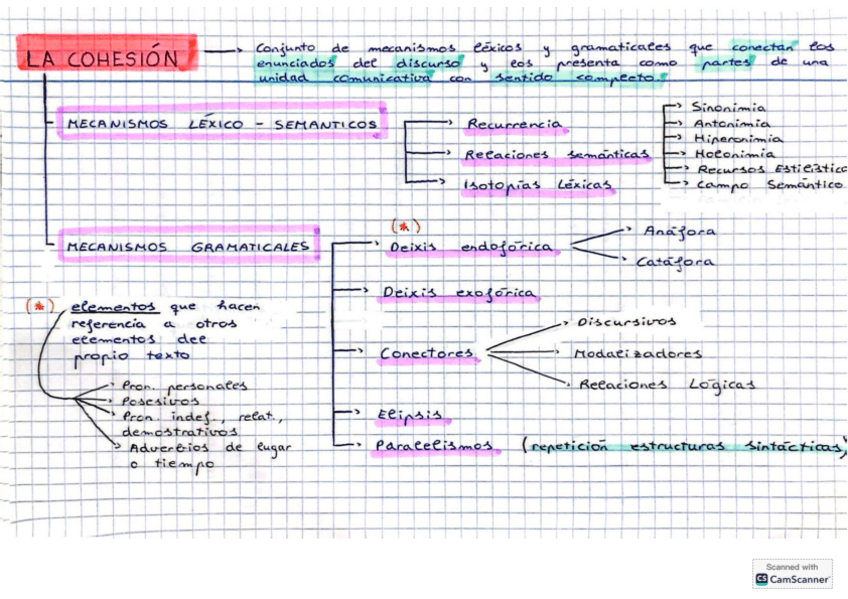 LA COHESIÓN → Conjunto de mecanismos léxicos y gramaticales que conectan los
enunciados del discurso y los presenta como partes de una
unidad comunicativa con sentido completo.
MECANISMOS LÉXICO - SEMANTICOS
Recurrencia
Relaciones semánticas
Sinonimia
Antonimia
Hiperonimia
Holonimia
Recursos Estilístico
Campo Semántico
Isotopías Léxicas
MECANISMOS GRAMATICALES
(*)
Deixis endofórica
Anáfora
Catáfora
Deixis exofórica
Conectores
Discursivos
Modalizadores
Relaciones Lógicas
Elipsis
Paralelismos (repetición estructuras sintácticas)
(*) elementos que hacen
referencia a otros
elementos del
propio texto
Pron. personales
Posesivos
Pron. indef., relat.,
demostrativos
Adverbios de lugar
o tiempo
Scanned with
CS CamScanner